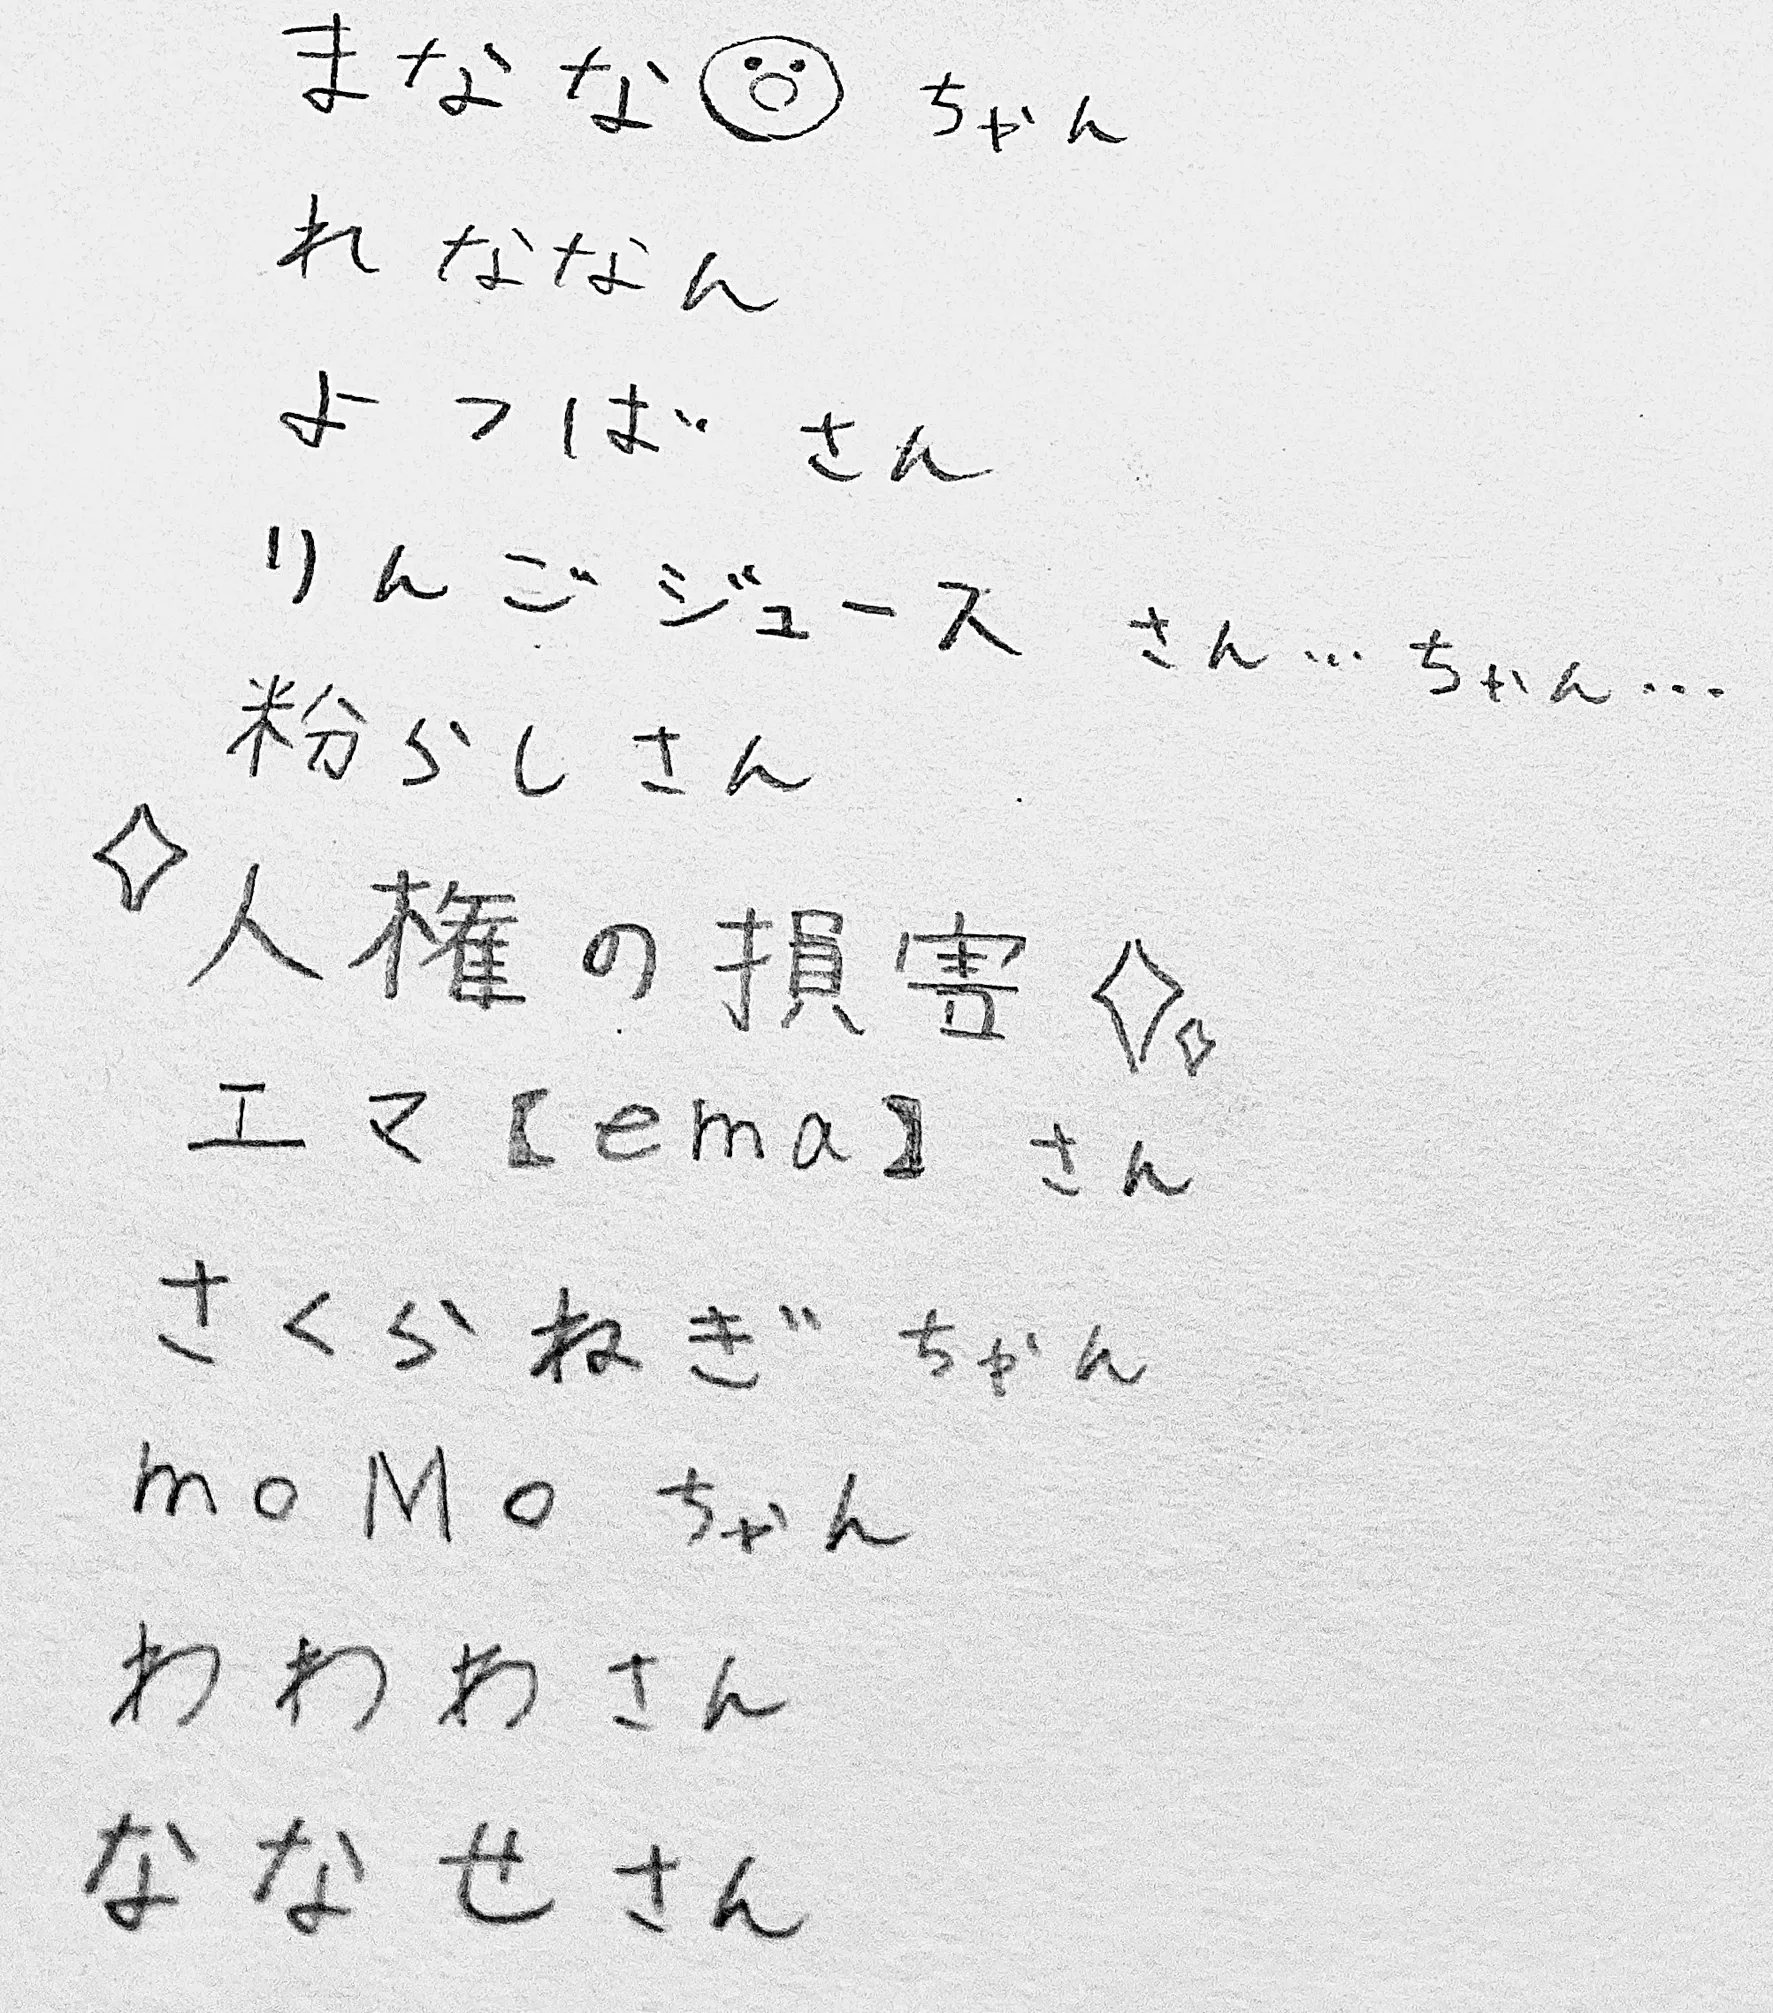 まななな😮ちゃん
れななん
よつばさん
りんごジュースさん…ちゃん…
粉らしさん
人権の損害
エマ【ema】さん
さくらねぎちゃん
moMoちゃん
わわわさん
ななせさん